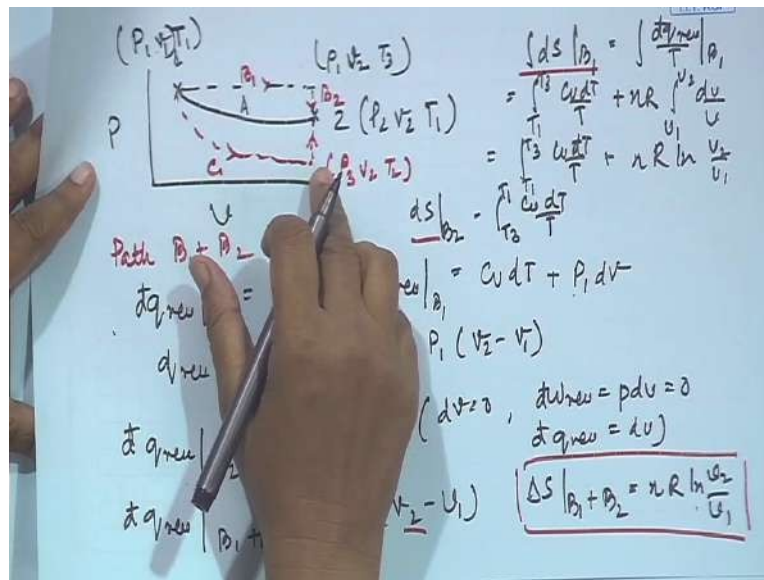 (P₁ V₁ T₁)
(P₁ V₂ T₃)
B₁
B₂
A
2 (P₂ V₂ T₁)
P
C₁
(P₃ V₂ T₂)
V
∫dS|B₁ = ∫ đqrev/T |B₁
= ∫T₁^T₃ CvdT/T + nR ∫v₁^v₂ dv/v
= ∫T₁^T₃ CvdT/T + nR ln v₂/v₁
dS|B₂ = ∫T₃^T₁ CvdT/T
Path B₁ + B₂
đqrev| =
rev|B₁ = CvdT + P₁dv
qrev
P₁ (V₂ - V₁)
đqrev|₂
(dv=0, đwrev = pdv = 0
đqrev = du)
đqrev|B₁ +
V₂ - V₁)
ΔS|B₁+B₂ = nR ln v₂/v₁